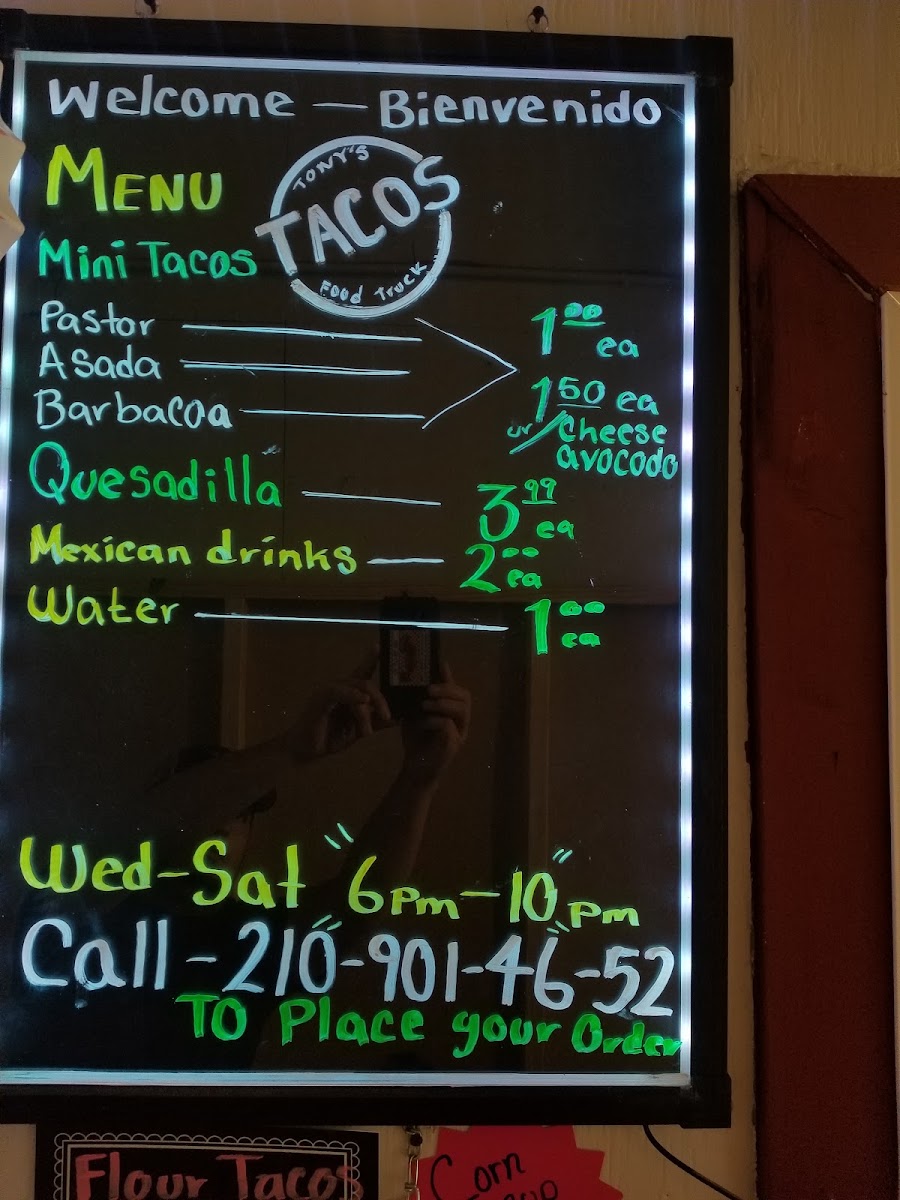 Welcome — Bienvenido
MENU
TONY'S
TACOS
FOOD TRUCK
Mini Tacos
Pastor
1.00 ea
Asada
Barbacoa
1 50 ea
ur/Cheese
avocodo
Quesadilla — 3 99 ea
Mexican drinks — 2 00 ea
Water — 1 00 ea
Wed-Sat "6pm-10"pm
Call - 210-901-46-52
TO Place your Order
Flour Tacos
Corn